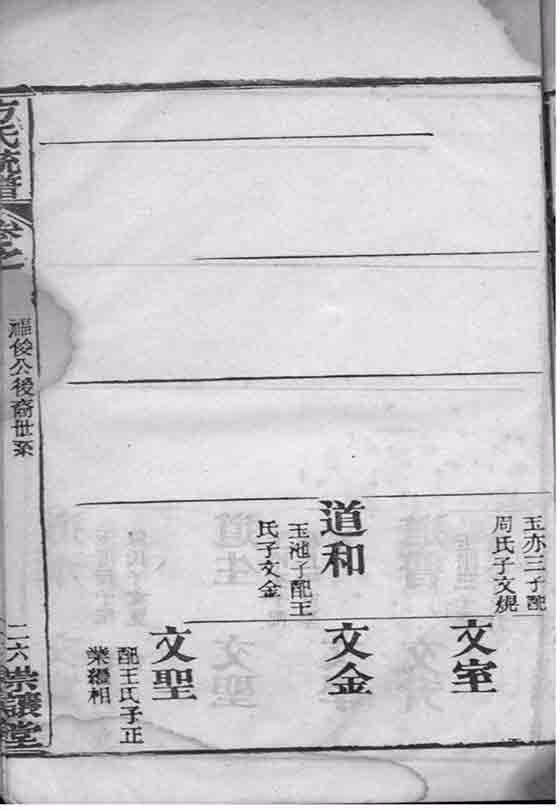 玉亦三子配
周氏子文規
道和
玉池子配王
氏子文金
文室
文金
文聖
配王氏子正
業繼相
方氏統譜
卷之
福俊公後裔世系
二六
崇讓堂